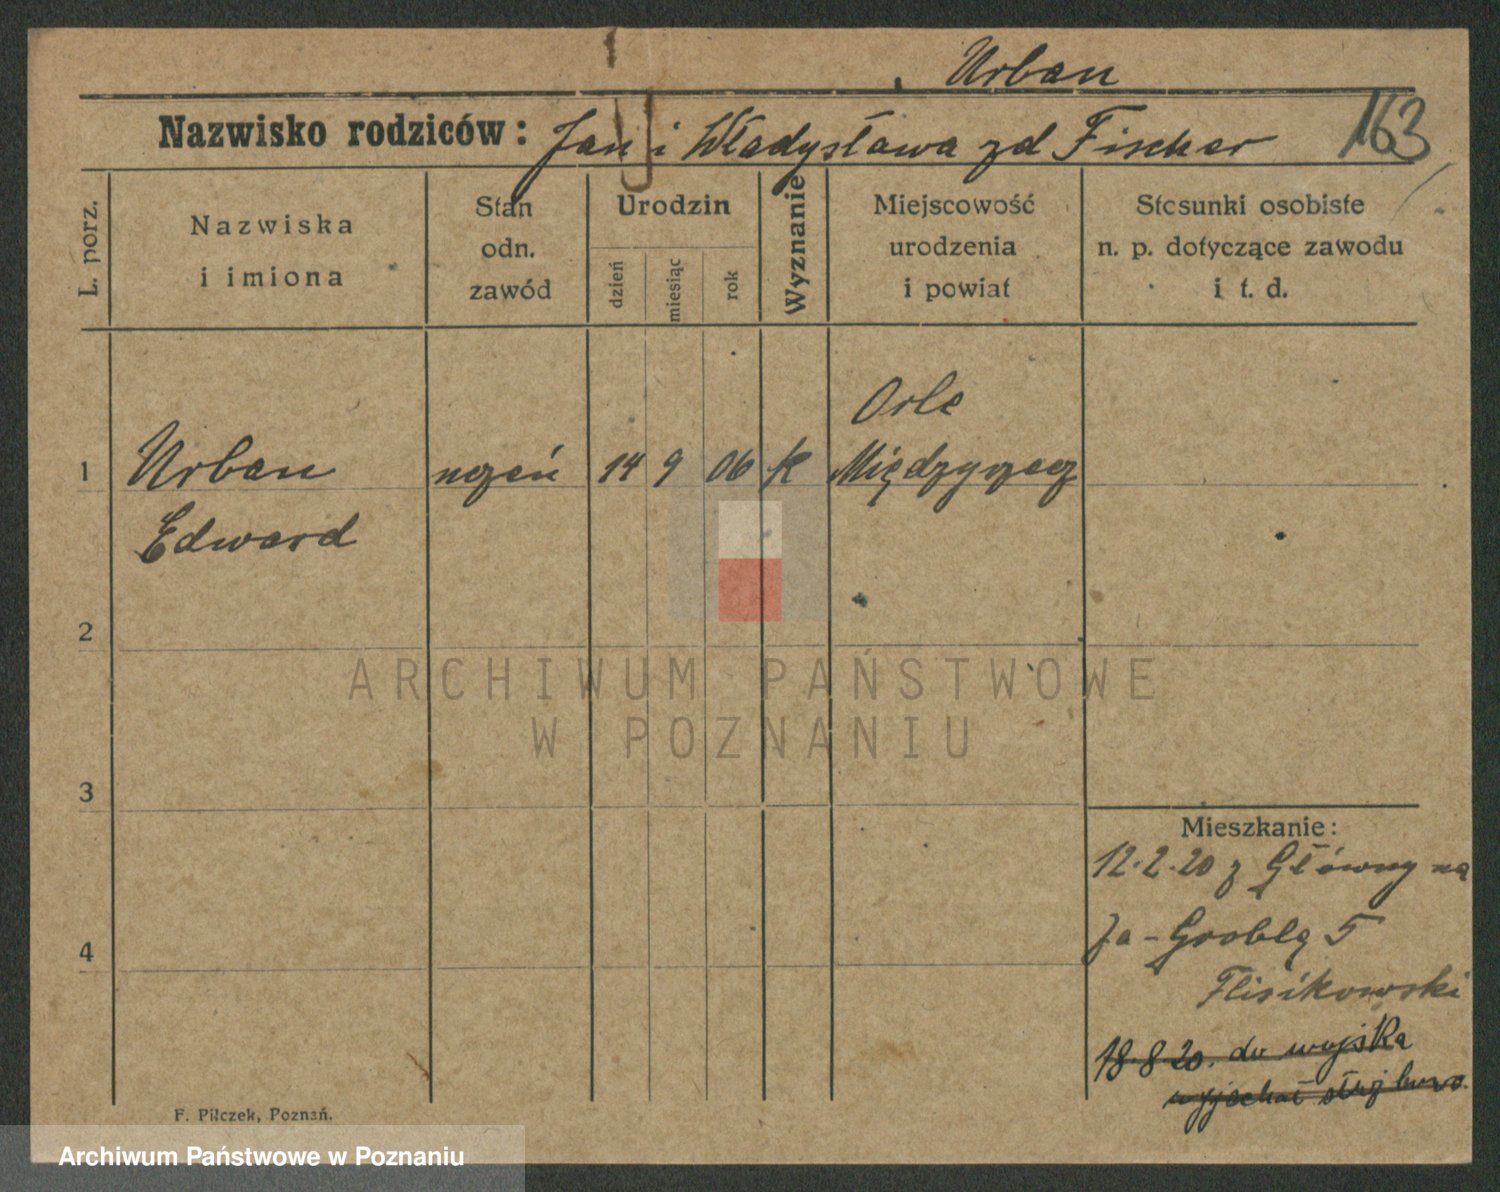 Urban
Nazwisko rodziców: Jan i Władysława zd Fischer
163
L. porz.
Nazwiska
i imiona
Stan
odn.
zawód
Urodzin
dzień
miesiąc
rok
Wyznanie
Miejscowość
urodzenia
i powiat
Stosunki osobiste
n. p. dotyczące zawodu
i t. d.
Orle
1 Urban uczeń 14 9 06 k Międzyrzecz
Edward
2
ARCHIWUM PAŃSTWOWE
W POZNANIU
3
Mieszkanie:
12.2.20 z Główny na
4
Za-Groblą 5
Flisikowski
18.8.20. do wojska
wyjechał
F. Pilczek, Poznań.
Archiwum Państwowe w Poznaniu